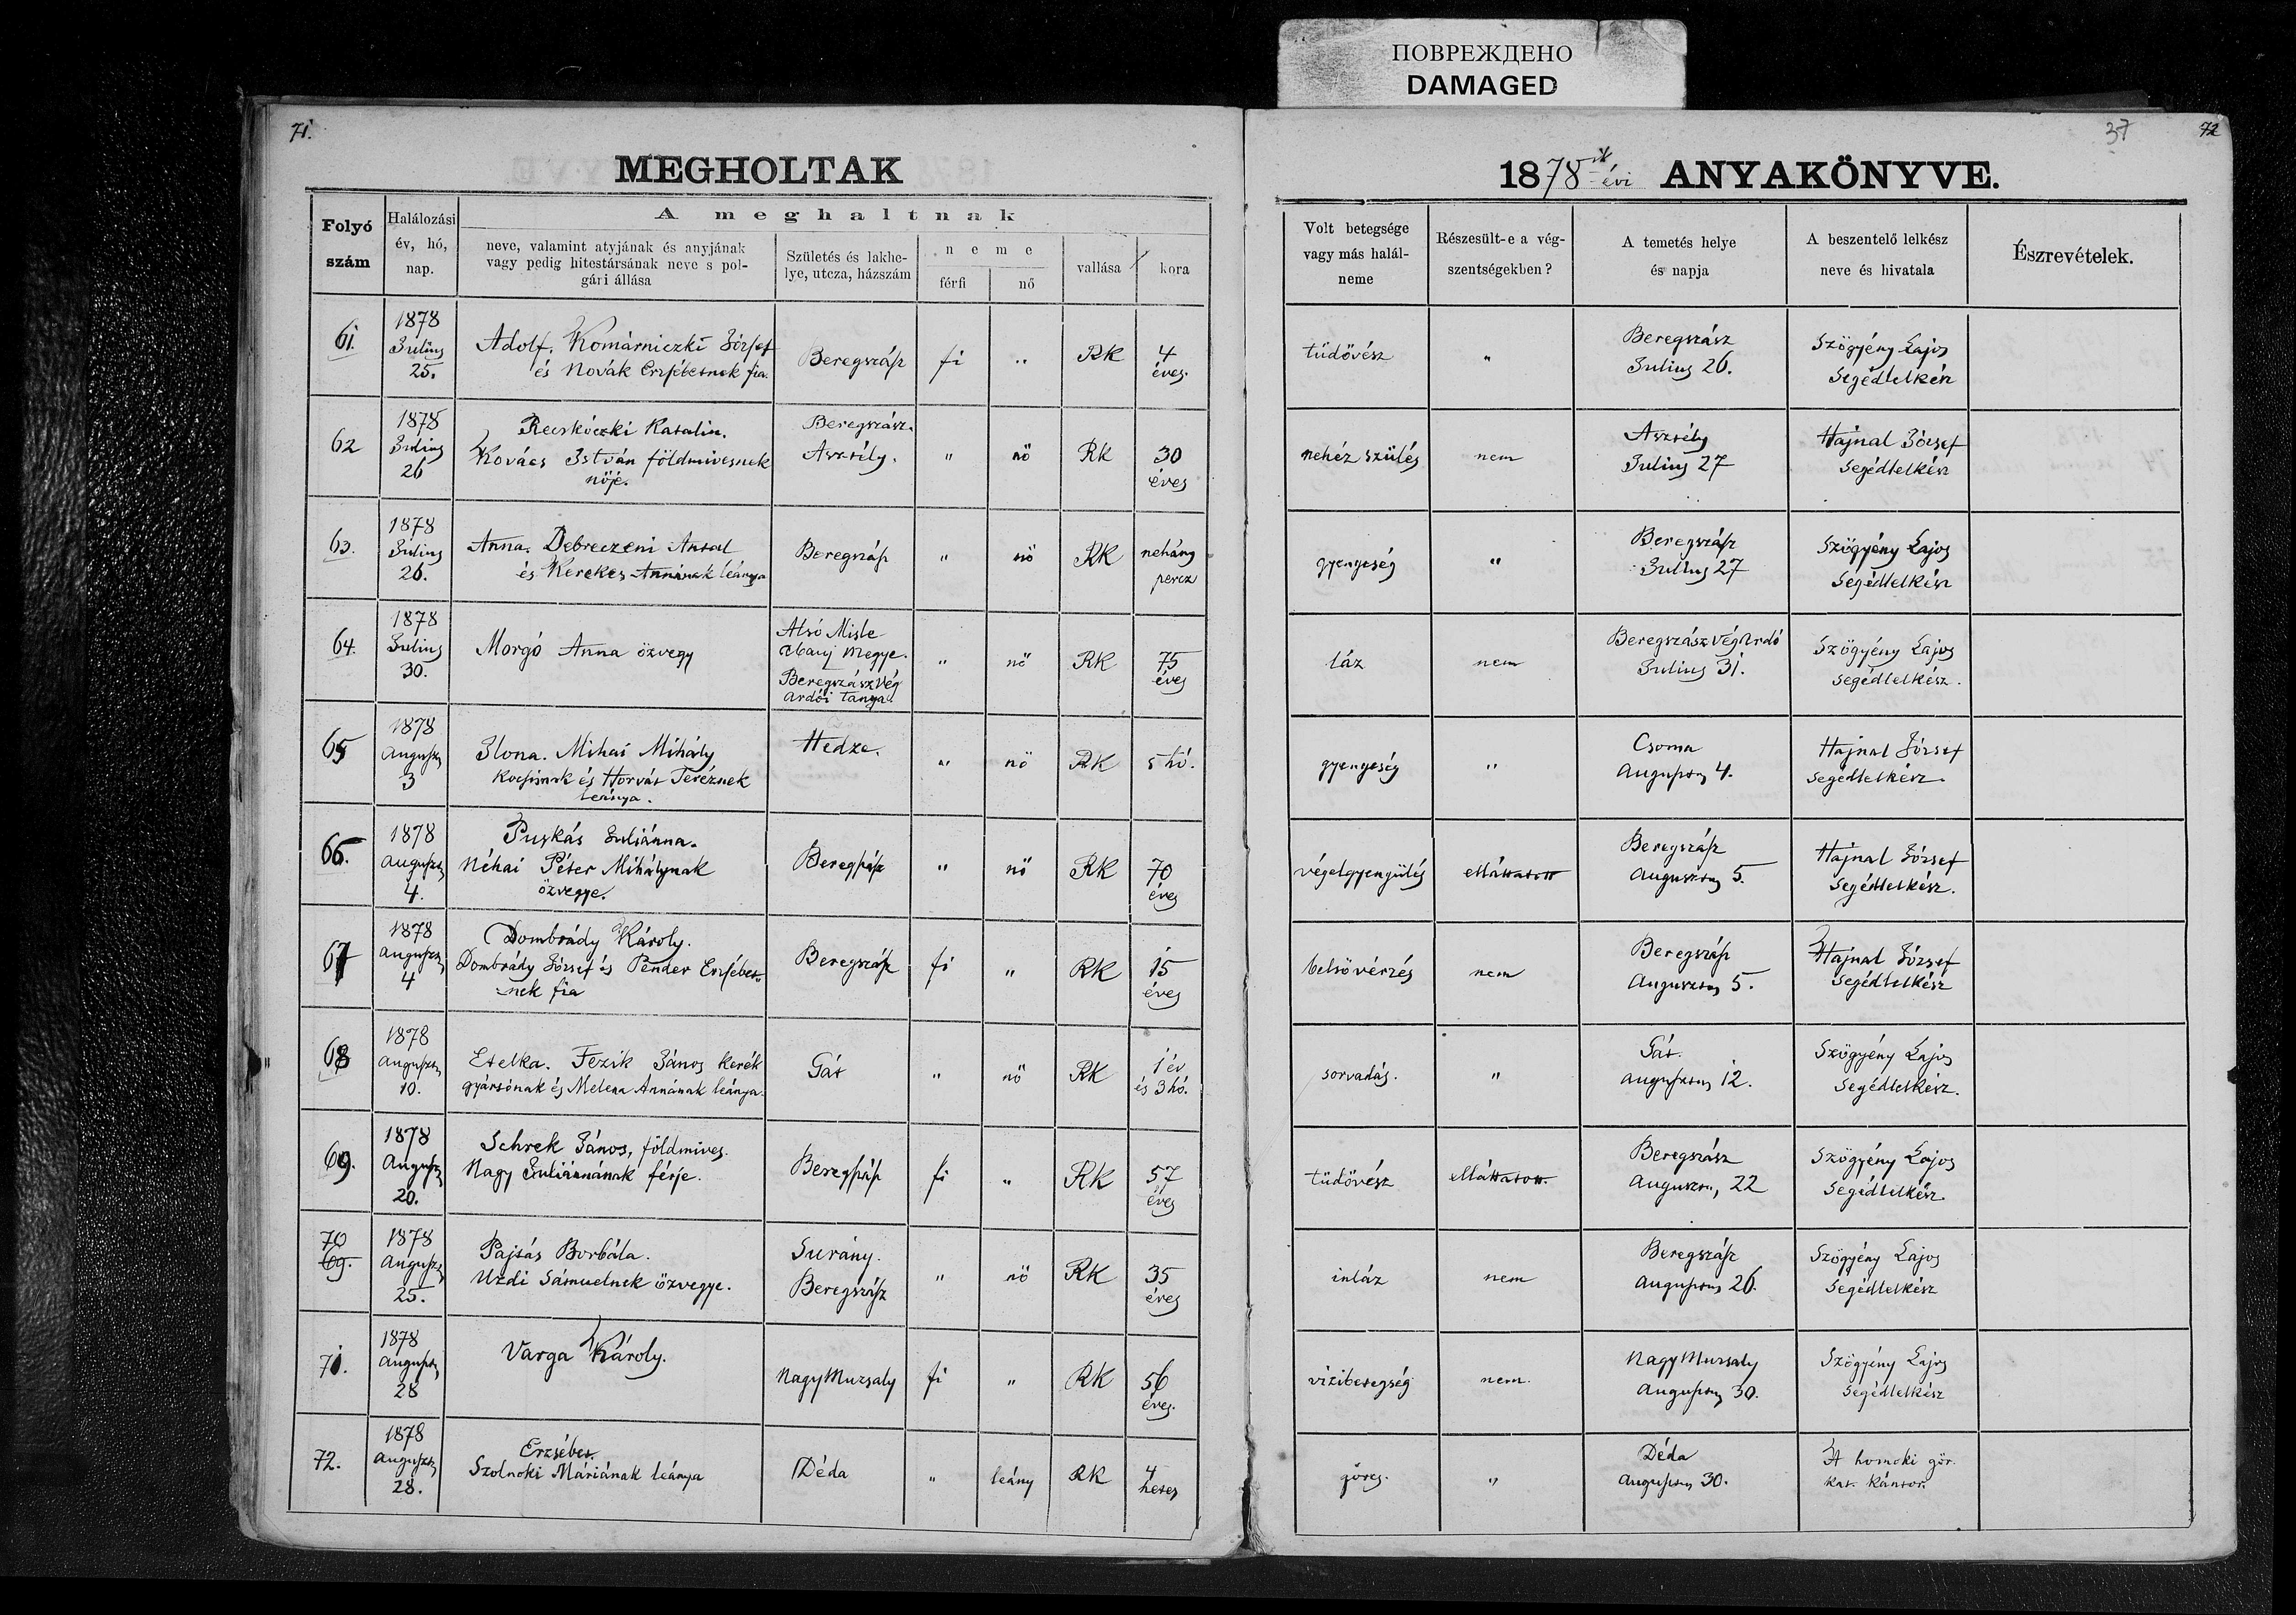 ПОВРЕЖДЕНО
DAMAGED
71.
37
72
MEGHOLTAK
1878ik évi ANYAKÖNYVE.
Folyó szám
Halálozási év, hó, nap.
A meghaltnak
neve, valamint atyjának és anyjának vagy pedig hitestársának neve s polgári állása
Születés és lakhelye, utcza, házszám
neme
férfi
nő
vallása
kora
Volt betegsége vagy más halálneme
Részesült-e a végszentségekben?
A temetés helye és napja
A beszentelő lelkész neve és hivatala
Észrevételek.
61.
1878 Julius 25.
Adolf. Komárniczki József
és Novák Erzsébetnek fia.
Beregszász
fi
"
RK
4 éves.
tüdővész
"
Beregszász
Julius 26.
Szögyény Lajos
Segédlelkész
62
1878 Julius 26
Recskóczki Katalin.
Kovács István földmivesnek
nője.
Beregszász.
Asztély.
"
nő
RK
30 éves
nehéz szülés
nem
Asztély
Julius 27
Hajnal József
segédlelkész
63.
1878 Julius 26.
Anna. Debreczeni Antal
és Kerekes Annának leánya
Beregszász
"
nő
RK
nehány percz
gyengeség
"
Beregszász
Julius 27
Szögyény Lajos
Segédlelkész
64.
1878 Julius 30.
Morgó Anna özvegy
Alsó Misle
Abauj megye.
Beregszászvég
Ardói tanya.
"
nő
RK
75 éves
láz
nem
BeregszászvégArdó
Julius 31.
Szögyény Lajos
segédlelkész.
65
1878 Augusztus 3
Ilona. Mihai Mihály
kocsisnak és Horvát Teréznek
leánya.
Hedze.
"
nő
RK
5 hó.
gyengeség
"
Csoma
Augusztus 4.
Hajnal József
segédlelkész.
66.
1878 Augusztus 4.
Puskás Juliánna.
Néhai Péter Mihálynak
özvegye.
Beregszász
"
nő
RK
70 éves
végelgyengülés
ellátatott
Beregszász
Augusztus 5.
Hajnal József
segédlelkész.
67
1878 Augusztus 4
Dombrády Károly.
Dombrády József és Pender Erzsébet-
nek fia
Beregszász
fi
"
RK
15 éves
belső vérzés
nem
Beregszász
Augusztus 5.
Hajnal József
segédlelkész
68
1878 Augusztus 10.
Etelka. Fezik János kerék
gyártónak és Melena Annának leánya.
Gát
"
nő
RK
1 év és 3 hó.
sorvadás.
"
Gát.
Augusztus 12.
Szögyény Lajos
Segédlelkész.
69.
1878 Augusztus 20.
Schrek János, földmives.
Nagy Juliánnának férje.
Beregszász
fi
"
RK
57 éves
tüdővész
ellátatott.
Beregszász
Augusztus 22
Szögyény Lajos
segédlelkész.
70
69.
1878 Augusztus 25.
Pajtás Borbála.
Uzdi Sámuelnek özvegye.
Surány.
Beregszász
"
nő
RK
35 éves
inláz
nem
Beregszász
Augusztus 26.
Szögyény Lajos
Segédlelkész
71.
1878 Augusztus 28
Varga Károly.
NagyMuzsaly
fi
"
RK
56 éves.
vizibetegség
nem.
NagyMuzsaly
Augusztus 30.
Szögyény Lajos
segédlelkész
72.
1878 Augusztus 28.
Erzsébet.
Szolnoki Máriának leánya
Déda
"
leány
RK
4 hetes
görcs.
"
Déda
Augusztus 30.
A homoki gör.
kat. kántor.